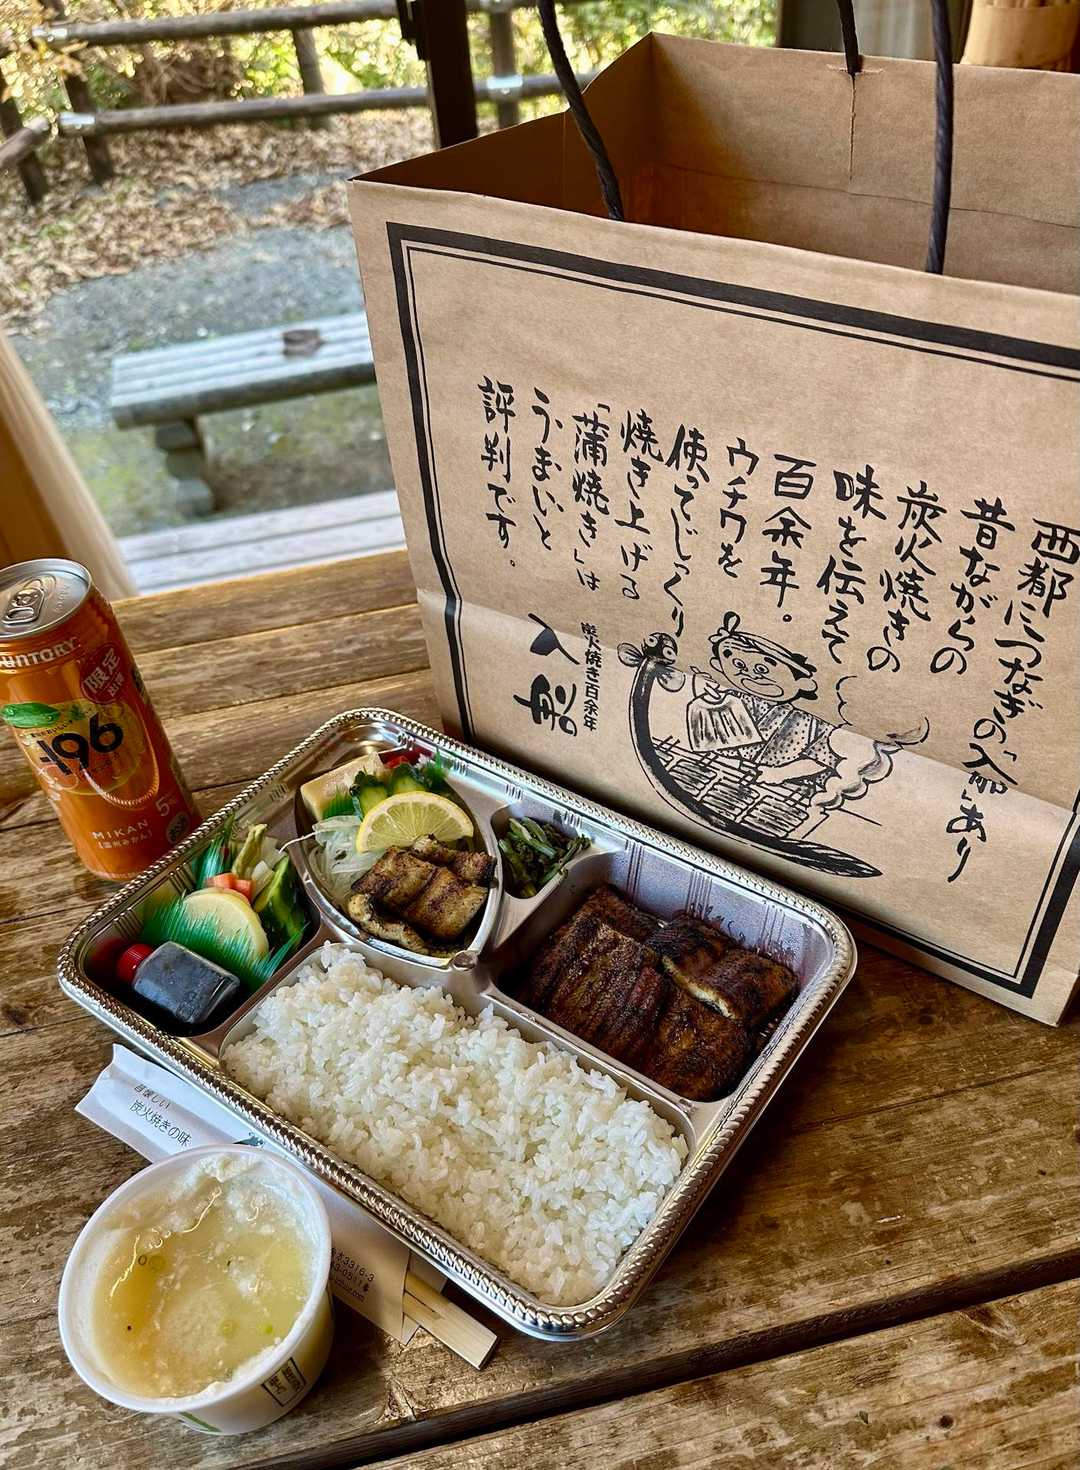 西都につなぎの「入船」あり
昔ながらの
炭火焼きの
味を伝えて
百余年。
ウチワを
使ってじっくり
焼き上げる
「蒲焼き」は
うまいと
評判です。
炭火焼き百余年
入船
SUNTORY
限定
-196
5%
MIKAN
【温州みかん】
昔懐しい
炭火焼きの味
3316-3